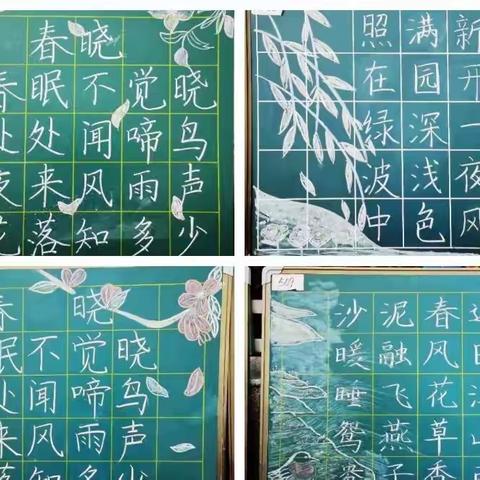 春晓
春眠不觉晓
处处闻啼鸟
夜来风雨声
花落知多少
新开一夜风
满园深浅色
照在绿波中
春晓
眠不觉晓
处闻啼鸟
来风雨声
落知多少
迟日江山
春风花草香
泥融飞燕子
沙暖睡鸳鸯